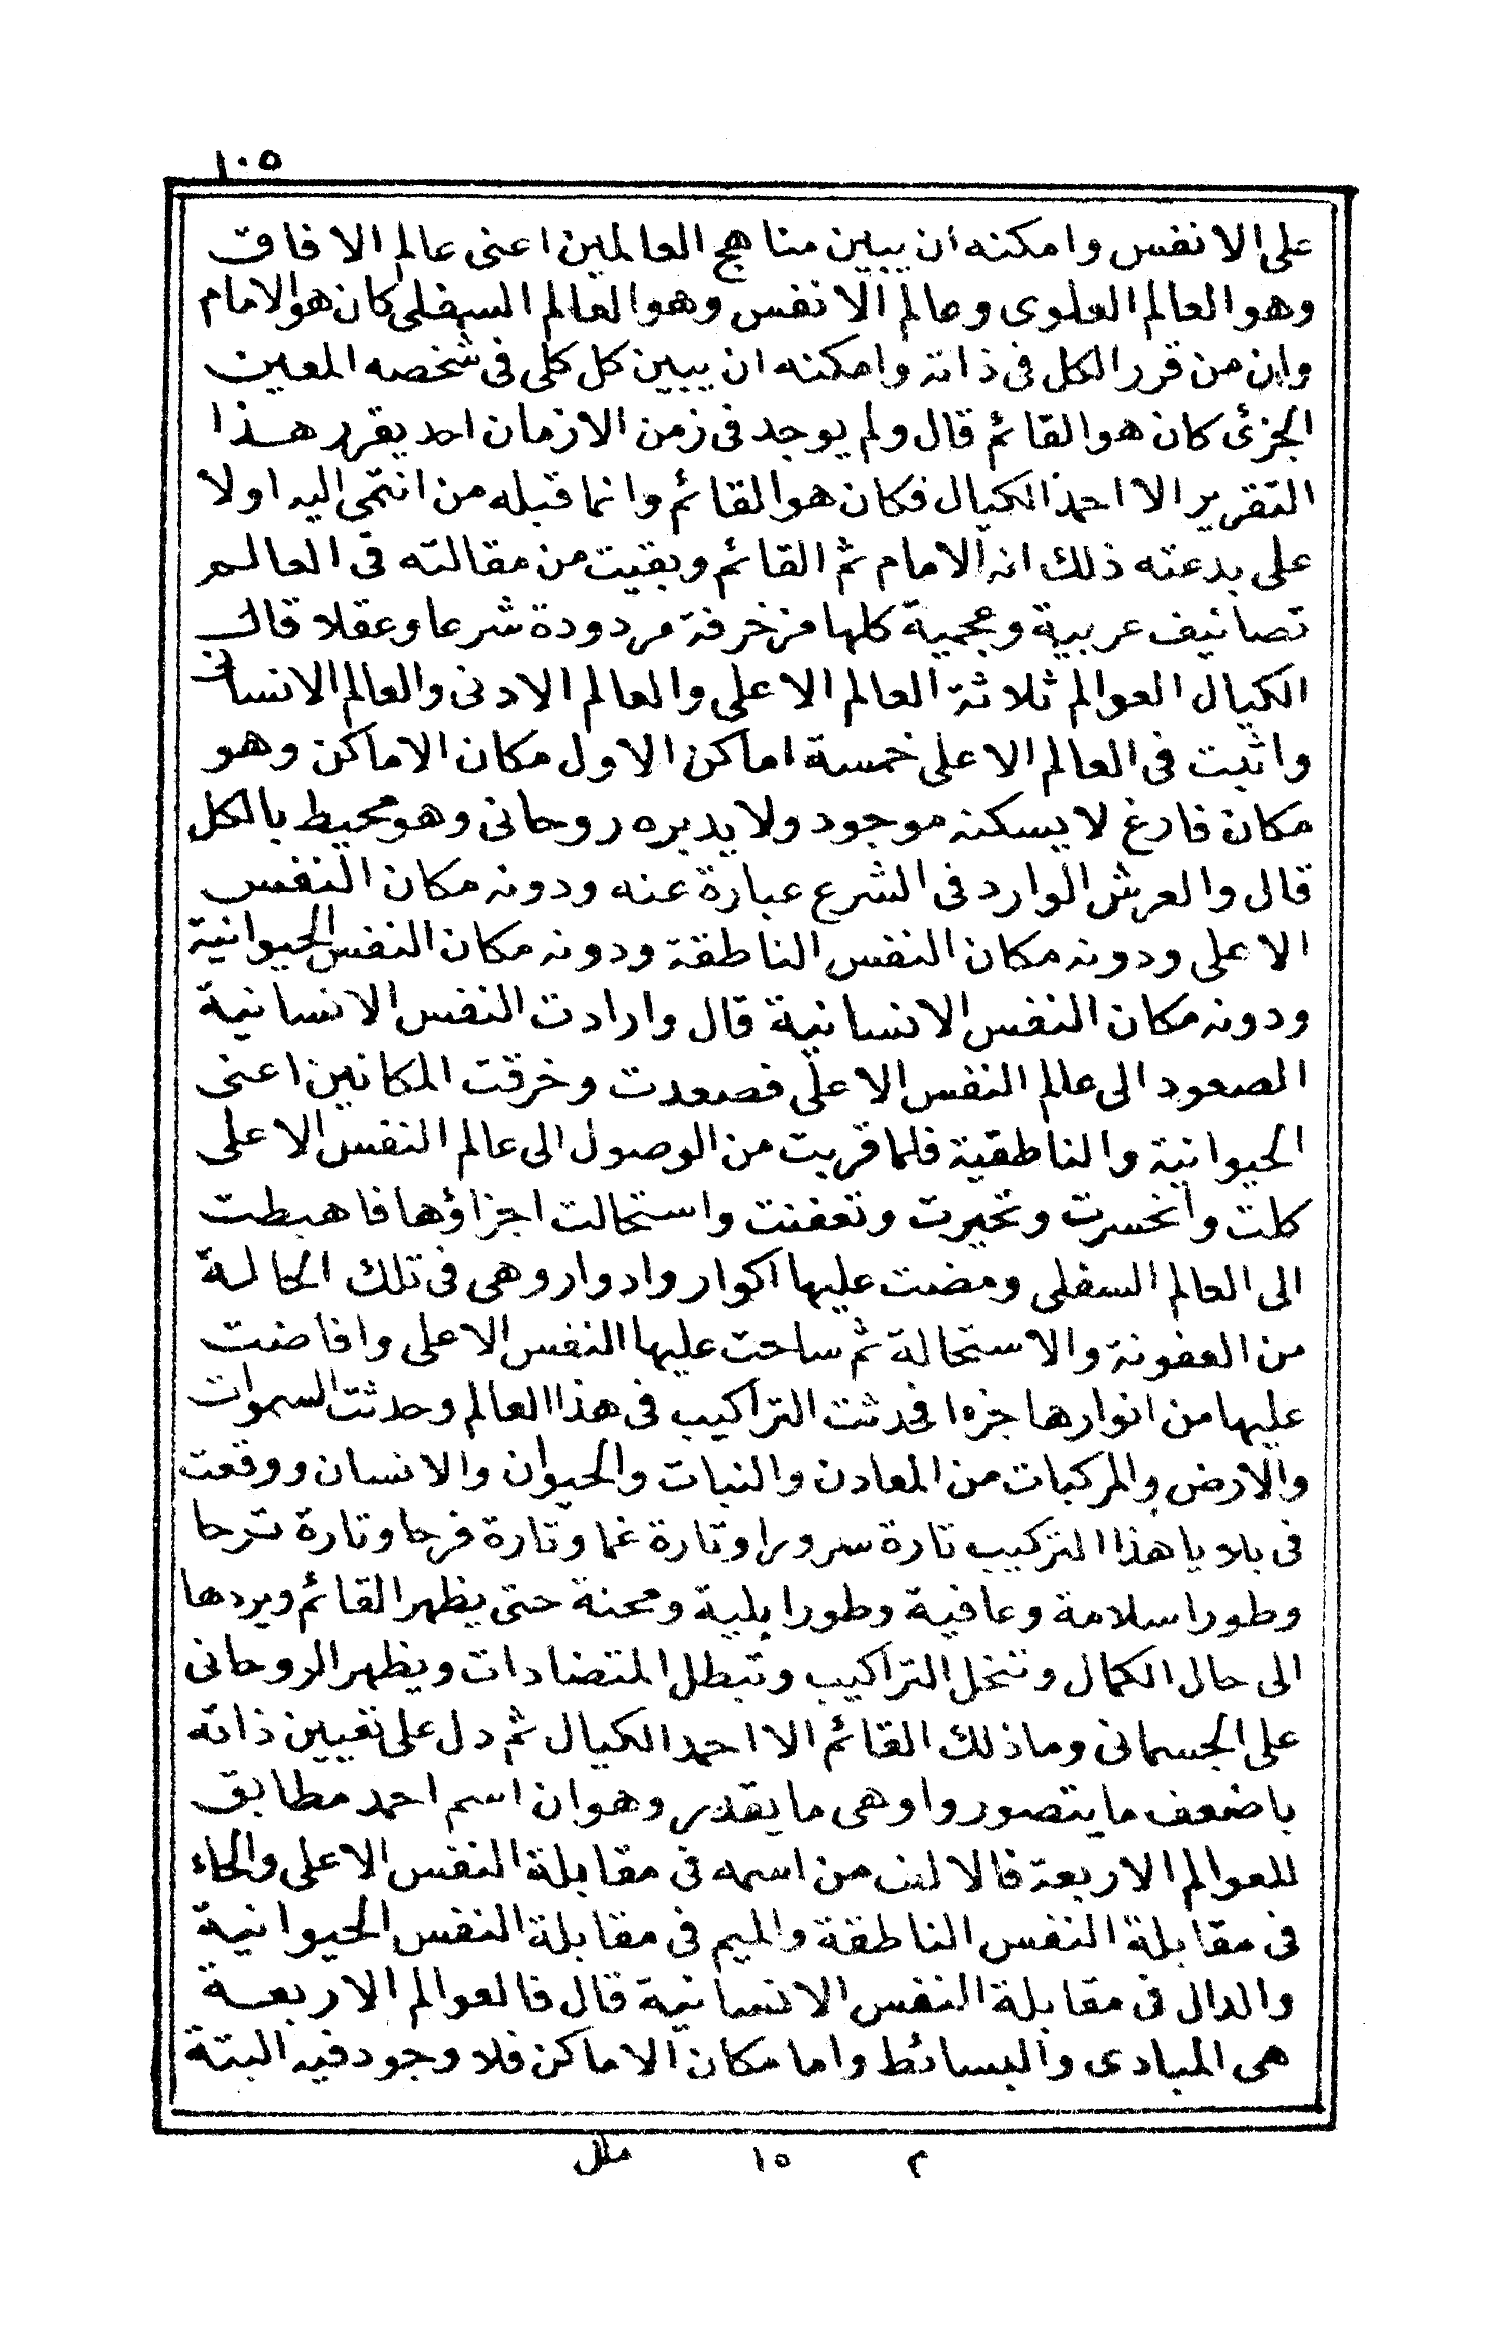 ١٠٥
على الانفس وامكنه ان يبين مناهج العالمين اعنى عالم الافاق
وهو العالم العلوى وعالم الانفس وهو العالم السفلى كان هو الامام
وان من قرر الكل فى ذاته وامكنه ان يبين كل كلى فى شخصه المعين
الجزئى كان هو القائم قال ولم يوجد فى زمن الازمان احد يقرر هذا
التقرير الا احمد الكيال فكان هو القائم وانما قبله من انتمى اليه اولا
على بدعته ذلك انه الامام ثم القائم وبقيت من مقالته فى العالم
تصانيف عربية وعجمية كلها مزخرفة مردودة شرعا وعقلا قال
الكيال العوالم ثلاثة العالم الاعلى والعالم الادنى والعالم الانسانى
واثبت فى العالم الاعلى خمسة اماكن الاول مكان الاماكن وهو
مكان فارغ لا يسكنه موجود ولا يدبره روحانى وهو محيط بالكل
قال والعرش الوارد فى الشرع عبارة عنه ودونه مكان النفس
الاعلى ودونه مكان النفس الناطقة ودونه مكان النفس الحيوانية
ودونه مكان النفس الانسانية قال وارادت النفس الانسانية
الصعود الى عالم النفس الاعلى فصعدت وخرقت المكانين اعنى
الحيوانية والناطقية فلما قربت من الوصول الى عالم النفس الاعلى
كلت وانخسرت وتحيرت وتعفنت واستحالت اجزاؤها فاهبطت
الى العالم السفلى ومضت عليها اكوار وادوار وهى فى تلك الحالة
من العفونة والاستحالة ثم ساحت عليها النفس الاعلى وافاضت
عليها من انوارها جزءا فحدثت التراكيب فى هذا العالم وحدثت السموات
والارض والمركبات من المعادن والنبات والحيوان والانسان ووقعت
فى بلايا هذا التركيب تارة سرورا وتارة غما وتارة فرحا وتارة ترحا
وطورا سلامة وعافية وطورا بلية ومحنة حتى يظهر القائم ويردها
الى حال الكمال وتنحل التراكيب وتبطل المتضادات ويظهر الروحانى
على الجسمانى وما ذلك القائم الا احمد الكيال ثم دل على تعيين ذاته
باضعف ما يتصور واوهى ما يقدر وهو ان اسم احمد مطابق
للعوالم الاربعة فالالف من اسمه فى مقابلة النفس الاعلى والحاء
فى مقابلة النفس الناطقة والميم فى مقابلة النفس الحيوانية
والدال فى مقابلة النفس الانسانية قال فالعوالم الاربعة
هى المبادى والبسائط واما مكان الاماكن فلا وجود فيه البتة
م ١٥ ملل